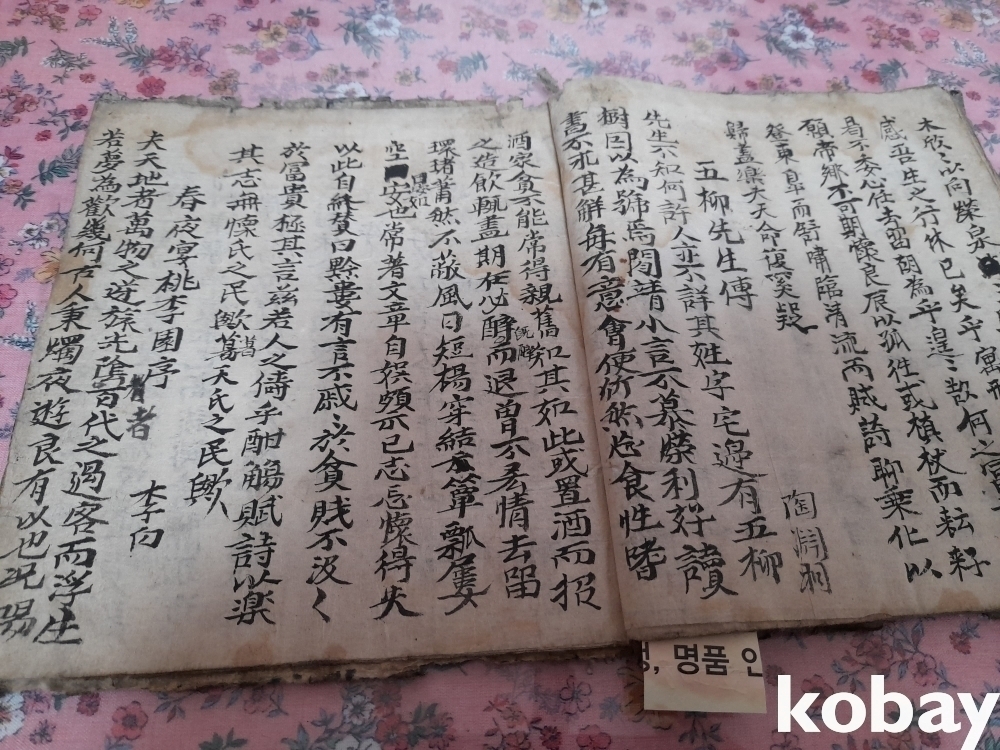 木欣々以向榮泉
感吾生之行休已矣乎寓形
曷不委心任去留胡為乎皇々欲何之富
願帝鄉不可期懷良辰以孤往或植杖而耘耔
登東皐而舒嘯臨淸流而賦詩聊乘化以
歸盡樂夫天命復奚疑
五柳先生傳 陶淵明
先生不知何許人亦不詳其姓字宅邊有五柳
樹因以為號焉閑靖小言不慕榮利好讀
書不求甚解每有意會便欣然忘食性嗜
酒家貧不能常得親舊知其如此或置酒而招
之造飮輒盡期在必醉旣醉而退曾不吝情去留
環堵蕭然不蔽風日短楊穿結簞瓢屢
空晏如也常著文章自娛頗示己志忘懷得失
以此自終贊曰黔婁有言不戚々於貧賤不汲々
於富貴極其言茲若人之儔乎酣觴賦詩以樂
其志無懷氏之民歟葛天氏之民歟
春夜宴桃李園序 李白
夫天地者萬物之逆旅光陰者百代之過客而浮生
若夢為歡幾何古人秉燭夜遊良有以也況陽
명품 인
kobay